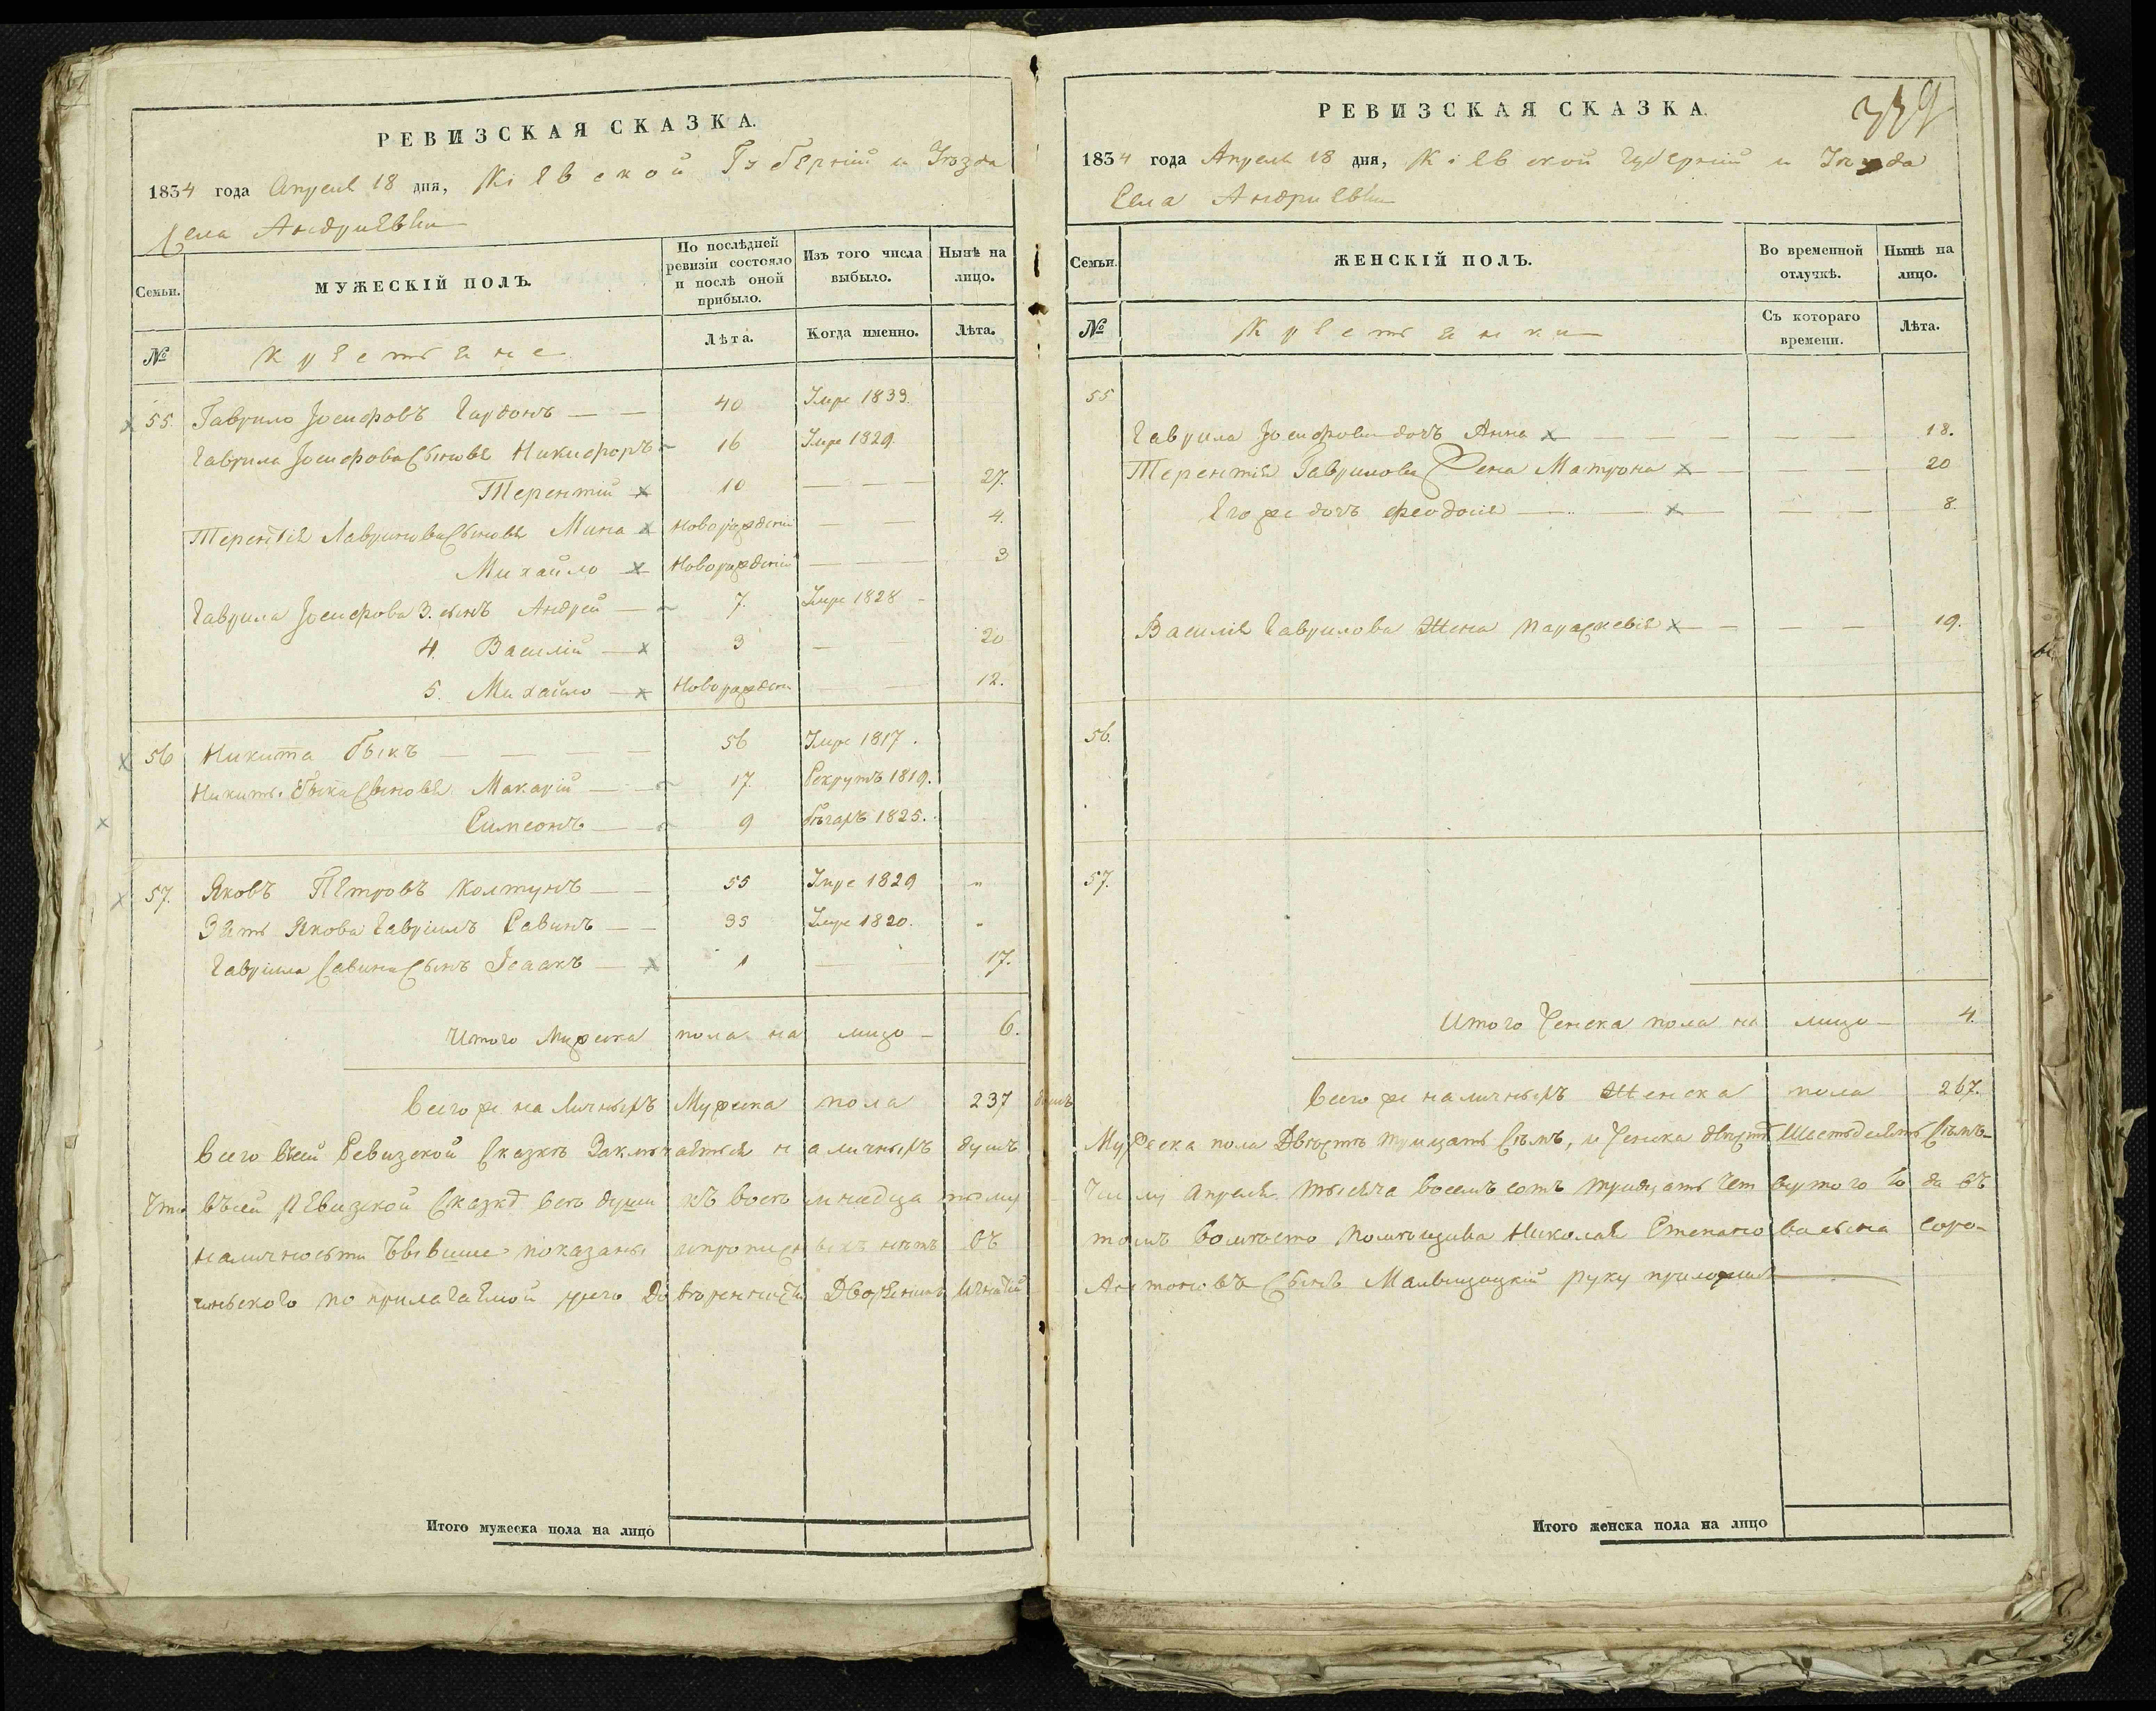 РЕВИЗСКАЯ СКАЗКА.
1834 года Апреля 18 дня, Кіевской Губерніи и Уѣзда
Села Андриевки
Семьи.
МУЖЕСКІЙ ПОЛЪ.
По послѣдней ревизіи состояло и послѣ оной прибыло.
Изъ того числа выбыло.
Нынѣ на лицо.
№
Крестяне
Лѣта.
Когда именно.
Лѣта.
55. Гаврило Іосифовъ Гардонъ — — 40 Умре 1833.
Гаврила Іосифова Сыновя Никифоръ 16 Умре 1829.
Терентій x 10 — — — 27.
Терентія Гаврилова Сыновя Мина x Новорожденій — — 4.
Михайло x Новорожденій — — — 3
Гаврила Іосифова 3. сынъ Андрей — 7. Умре 1828
4. Василій — x 3 — 20
5. Михайло — x Новорожден — — 12.
56 Никита Быкъ — — — — 56 Умре 1817.
Никиты Быка Сыновя Макарій — — 17. Рекрутъ 1819.
Симеонъ — — 9 бѣгахъ 1825.
57. Яковъ Петровъ Колтунъ — — 55 Умре 1829 "
Зять Якова Гавріилъ Савинъ — — 35 Умре 1820. "
Гавріила Савина Сынъ Ісаакъ — x 1 — 17.
Итого Мужеска пола на лицо — 6.
Всего же наличныхъ Мужеска пола 237 душъ
Всего Всей Ревизской Сказкѣ Заключается наличныхъ душъ
Что Въсей Ревизской Сказкѣ Всѣ души къ
наличности показаны и прописныхъ нѣтъ въ
по прилагаемой Довѣренности Дворянинъ Игнатій
Итого мужеска пола на лицо
РЕВИЗСКАЯ СКАЗКА.
339
1834 года Апреля 18 дня, Кіевской Губерніи и Уѣзда
Села Андриевки
Семьи.
ЖЕНСКІЙ ПОЛЪ.
Во временной отлучкѣ.
Нынѣ на лицо.
№
Крестянки
Съ котораго времени.
Лѣта.
55
Гаврила Іосифова дочъ Анна x — — — — — — 18.
Терентія Гаврилова Жена Матрона x — — 20
Его же дочъ Феодосія — — x — — — 8.
Василія Гаврилова Жена Параскевія x — — — — 19.
56.
57.
Итого Женска пола на лицо — 4.
Всего же наличныхъ Женска пола 267.
Мужеска пола Двѣстѣ тридцать Сѣмъ, и Женска двѣстѣ Шестьдесятъ Сѣмъ
Числу Апреля тысяча восемъ сотъ тридцать Четвертого Года Въ
томъ Вомѣсто Помѣщика Николая Степанова сына Соро-
Антоновъ Сынъ Мальчицкій руку приложилъ
Итого женска пола на лицо